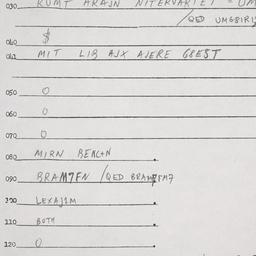 030 KUMT ARAJN NITERVARIET = UM
/QED UMGBIRI
040 $
041 MIT LIB AJX AJERE GBEST
050 0
060 0
070 0
080 MIRN BEACTN .
090 BRAM7FN /QED BRAM7FM7
100 LEXAJ1M .
110 BOTH .
120 0 .